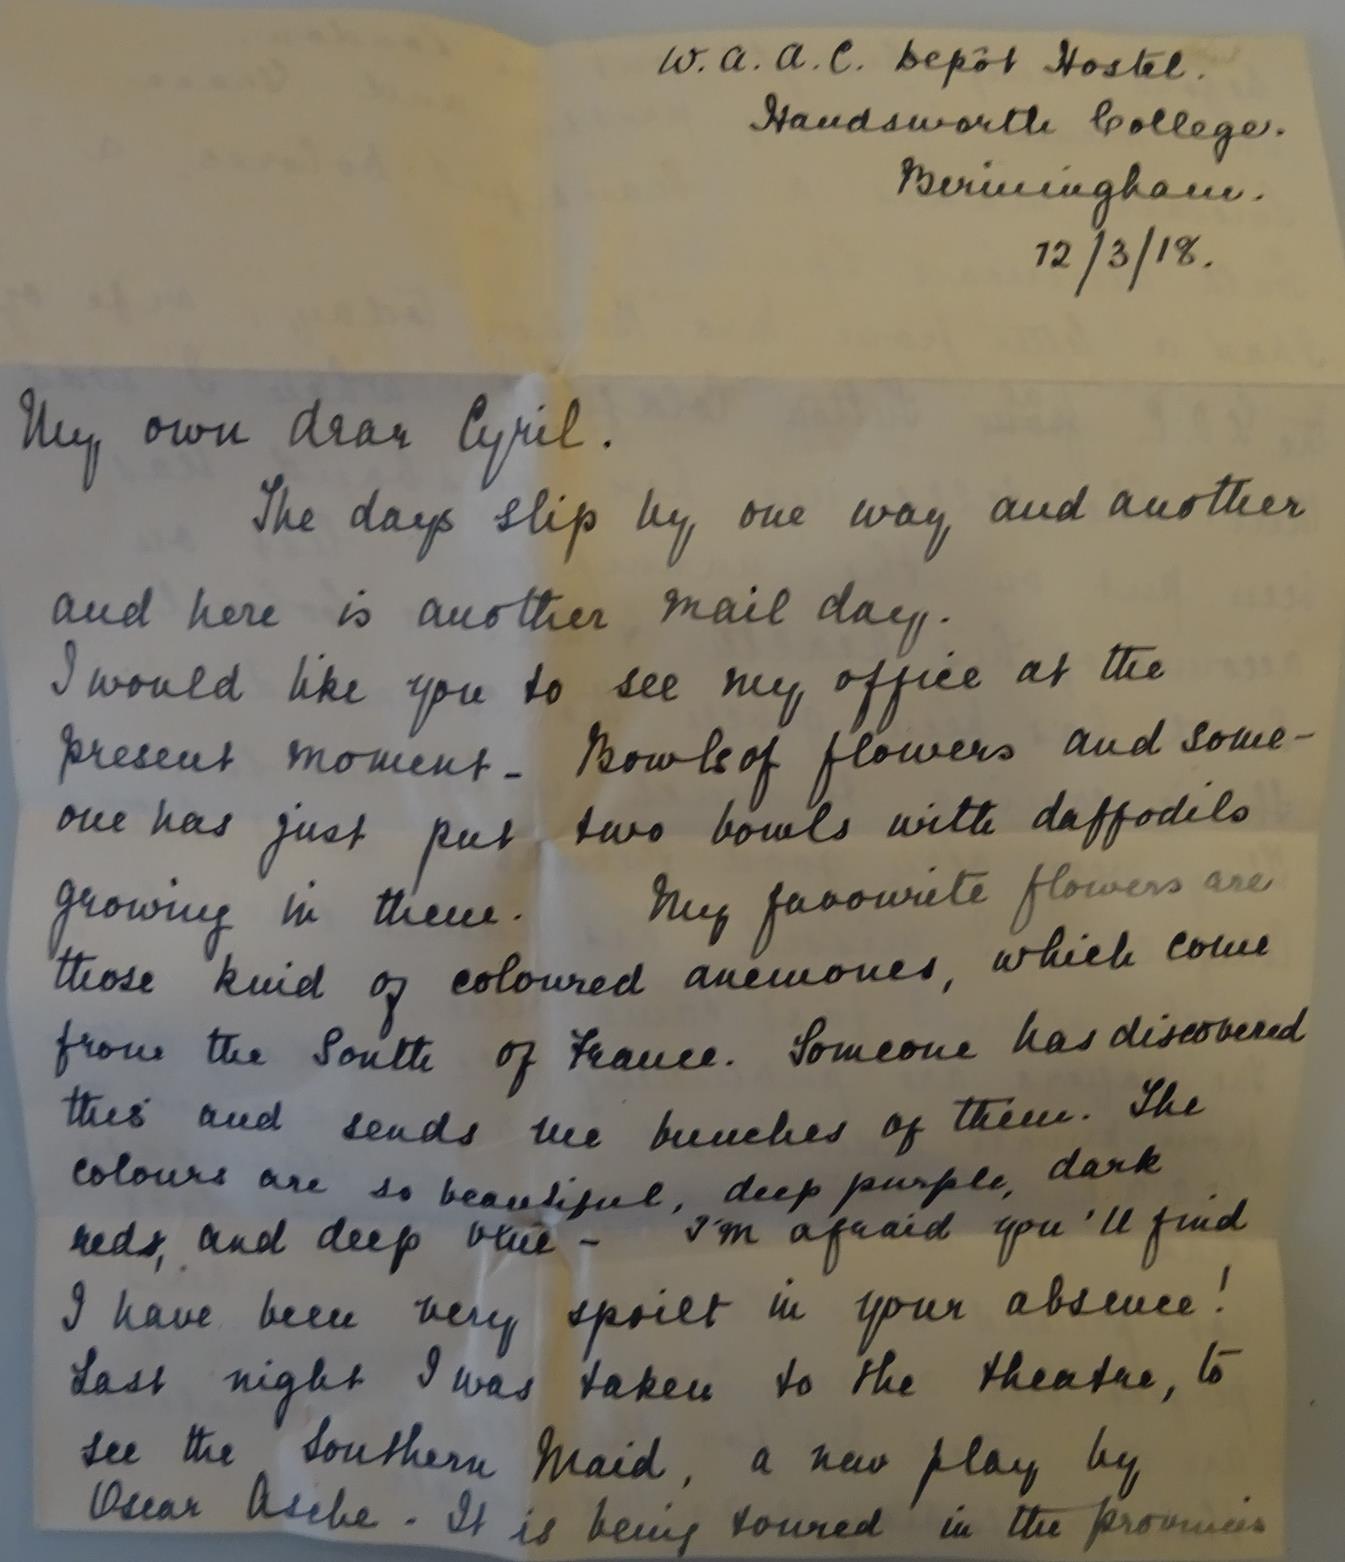 W.A.A.C. Depôt Hostel.
Handsworth College.
Birmingham.
12/3/18.
My own dear Cyril.
The days slip by one way and another
and here is another mail day.
I would like you to see my office at the
present moment - Bowls of flowers and some-
one has just put two bowls with daffodils
growing in them. My favourite flowers are
those kind of coloured anemones, which come
from the South of France. Someone has discovered
this and sends me bunches of them. The
colours are so beautiful, deep purple, dark
reds, and deep blue - I'm afraid you'll find
I have been very spoilt in your absence!
Last night I was taken to the theatre, to
see the Southern Maid, a new play by
Oscar Asche. It is being toured in the provinces